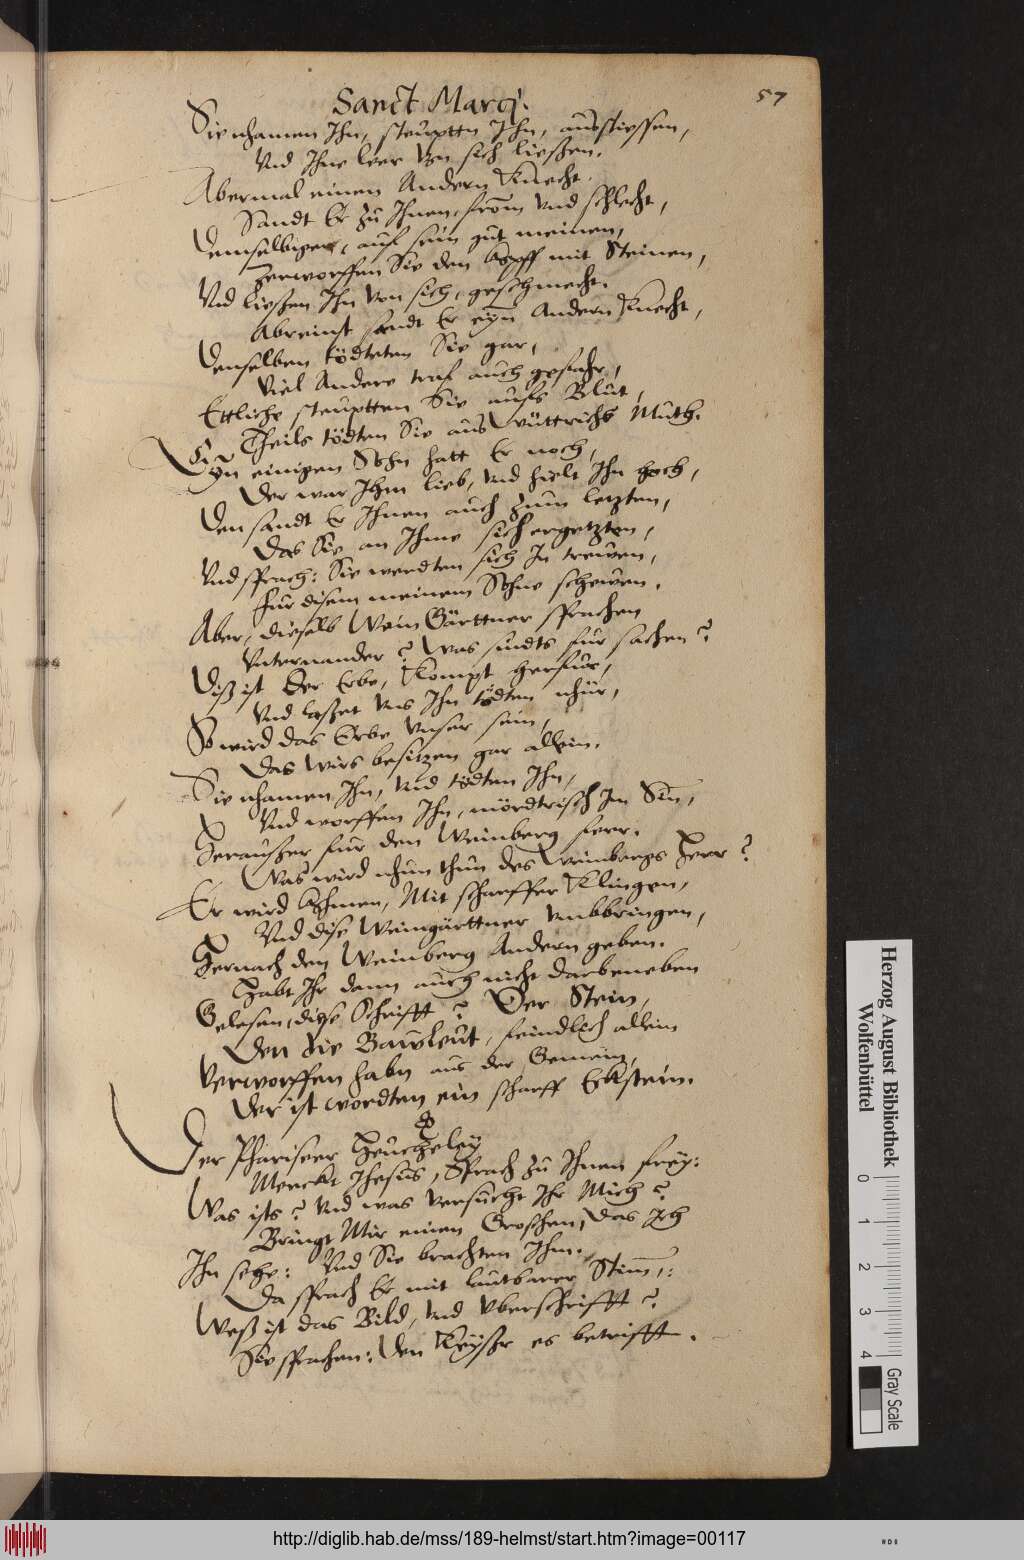 Sanct Marcj.
57
Sie nhamen Ihn, steuptten Ihn, ausstiessen,
Vnd Ihne leer Von sich liessen.
Abermal einen Andern Knecht.
Sandt Er zu Ihnen, from Vnd schlecht,
Demselbigen, auf sein gut meinen,
Zerworffen Sie den kopff mit Steinen,
Vnd liessen Ihn Von sich, geschmecht.
Abreinst sandt Er eyn Andern Knecht,
Denselben tödteten Sie gar,
Viel Andere traf auch gefahr,
Ettliche steuptten Sie aufs Blut,
Theils tödten Sie aus Wüttrichs Muth.
Eyn einigen Sohn hatt Er noch,
Der war Ihm lieb, Vnd hielt Ihn hoch,
Den sandt Er Ihnen auch zum letzten,
Das Sie an Ihme sich ergetzten,
Vnd sprach: Sie werdten sich In trewen,
Fur disem meinem Sohne schewen.
Aber, dieselb Wein Gärttner sprachen
Vnternander? Was sindts fur sachen?
Diß ist der Erbe, Kompt herfur,
Vnd lasset Vns Ihn tödten nhur,
So wird das Erbe Vnser sein,
Das Wirs besitzen gar allein.
Sie nhamen Ihn, Vnd tödten Ihn,
Vnd worffen Ihn, mördtrisch Im Sin,
Herausser fur den Weinberg ferr.
Was wird nhun thun des Weinbergs Herr?
Er wird kohmen, Mit scharffer Klingen,
Vnd dise Weingärttner Vmbbringen,
Hernach den Weinberg Andern geben.
Habt Ihr dann auch nicht darbeneben
Gelesen, diese Schrifft? Der Stein,
Den die Bawleut, feindlich allein
Verworffen habn aus der Gemein,
Der ist wordten ein scharff Eckstein.
Der Phariseer Heuchheley
Merckt Ihesus, Sprach zu Ihnen frey:
Was ists? Vnd was Versucht Ihr Mich?
Bringt Mir einen Groschen, das Ich
Ihn sehe: Vnd Sie brachten Ihm.
Da sprach Er mit lautbarer Stimm:
Weß ist das Bild, Vnd Vberschrifft?
Sie sprachen: Den Keyser es betrifft.
Herzog August Bibliothek
Wolfenbüttel
0 1 2 3 4
Gray Scale
http://diglib.hab.de/mss/189-helmst/start.htm?image=00117